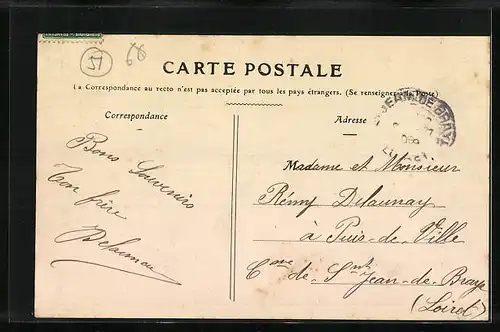 51
68
CARTE POSTALE
La Correspondance au recto n'est pas acceptée par tous les pays étrangers. (Se renseigner à la Poste)
Correspondance
Adresse
Bons Souvenirs
Ton frère
Delaunay
Madame et Monsieur
Rémy Delaunay
à Puis-de-Ville
Cne de St Jean-de-Braye
(Loiret)